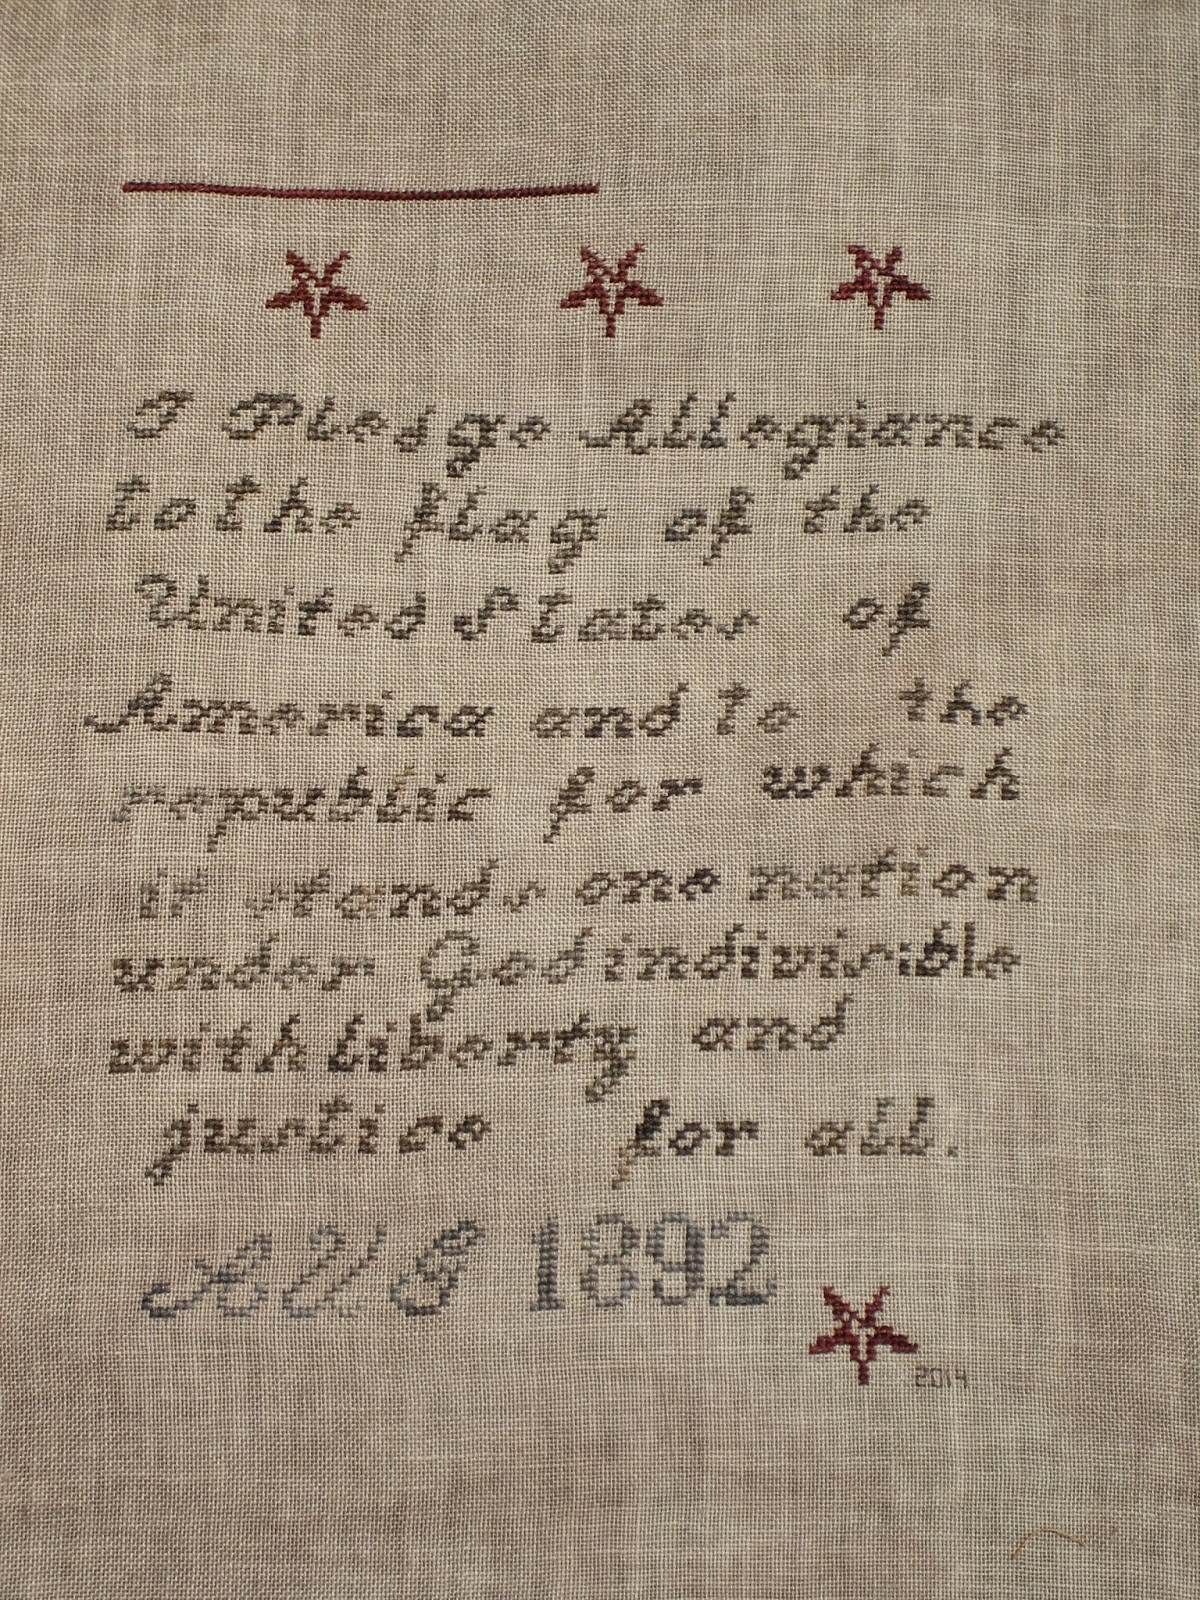 I Pledge Allegiance
to the flag of the
United States of
America and to the
republic for which
it stands one nation
under God indivisible
with liberty and
justice for all.
AUG 1892
2014